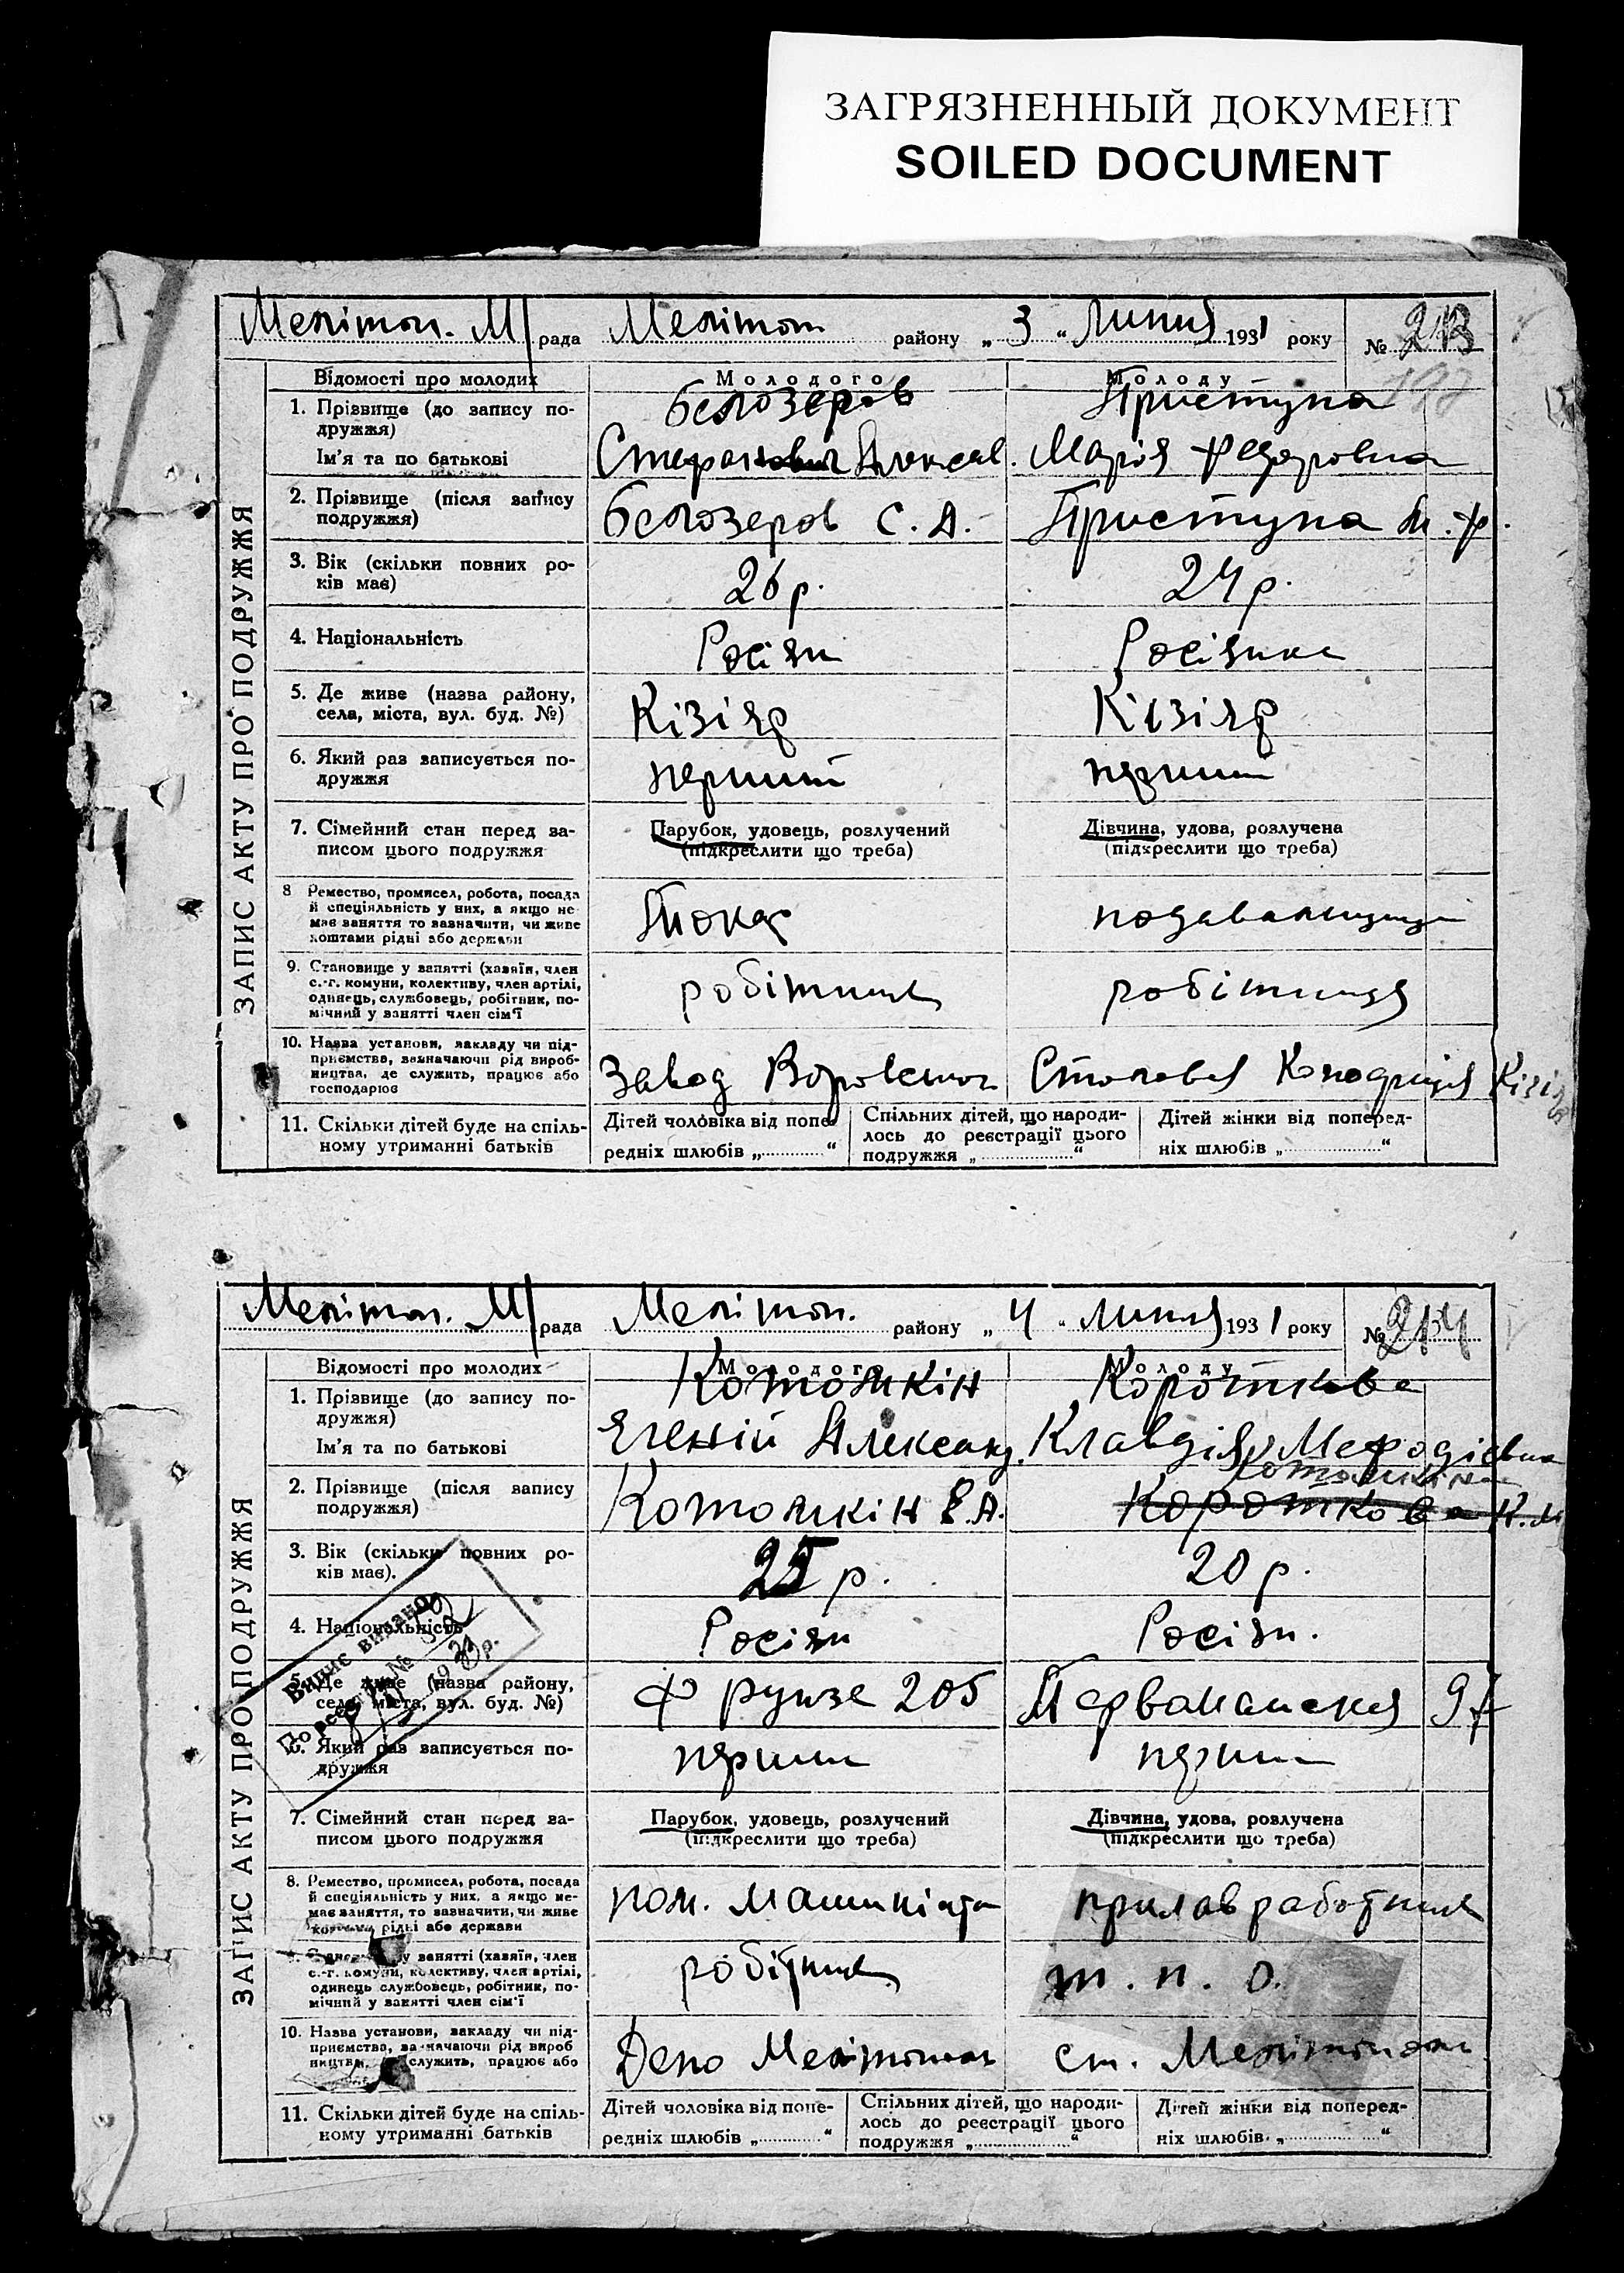 ЗАГРЯЗНЕННЫЙ ДОКУМЕНТ
SOILED DOCUMENT
Мелітоп. М/рада Мелітоп району „ 3 “ Липня 1931 року № 213
197
ЗАПИС АКТУ ПРО ПОДРУЖЖЯ
Відомості про молодих
Молодого
Молоду
1. Прізвище (до запису по-
дружжя)
Белозеров
Приступа
Ім'я та по батькові
Марія Федоровна
2. Прізвище (після запису
подружжя)
Белозеров С. А.
Приступа М. Ф.
3. Вік (скільки повних ро-
ків має)
26 р.
24 р.
4. Національність
Росіян
Росіянка
5. Де живе (назва району,
села, міста, вул. буд. №)
Кізіяр
Кізіяр
6. Який раз записується по-
дружжя
перший
перший
7. Сімейний стан перед за-
писом цього подружжя
Парубок, удовець, розлучений
(підкреслити що треба)
Дівчина, удова, розлучена
(підкреслити що треба)
8 Ремество, промисел, робота, посада
й спеціяльність у них, а якщо не
має заняття то зазначити, чи живе
коштами рідні або держави
Токар
9. Становище у занятті (хазяїн, член
с.-г. комуни, колективу, член артілі,
одинець, службовець, робітник, по-
мічний у занятті член сім'ї
робітник
робітниця
10. Назва установи, закладу чи під-
приємства, зазначаючи рід вироб-
ництва, де служить, працює або
господарює
Завод Воровского
Столовая Кізіяр
11. Скільки дітей буде на спіль-
ному утриманні батьків
Дітей чоловіка від попе-
редніх шлюбів „ “
Спільних дітей, що народи-
лось до реєстрації цього
подружжя „ “
Дітей жінки від поперед-
ніх шлюбів „ “
Мелітоп. М/рада Мелітоп. району „ 4 “ Липня 1931 року № 214
ЗАПИС АКТУ ПРО ПОДРУЖЖЯ
Відомості про молодих
Молодого
Молоду
1. Прізвище (до запису по-
дружжя)
Котомкін
Короткова
Ім'я та по батькові
Егеній Александ.
Клавдія Мефодієвна
2. Прізвище (після запису
подружжя)
Котомкін Е.А.
Котомкіна
Короткова К.М
3. Вік (скільки повних ро-
ків має).
25 р.
20 р.
4. Національність
Росіян
Росіян.
Випис видано
По реєстру №
5. Де живе (назва району,
села, міста, вул. буд. №)
Фрунзе 205
Первомайская 97
6. Який раз записується по-
дружжя
перший
перший
7. Сімейний стан перед за-
писом цього подружжя
Парубок, удовець, розлучений
(підкреслити що треба)
Дівчина, удова, розлучена
(підкреслити що треба)
8. Ремество, промисел, робота, посада
й спеціяльність у них, а якщо не-
має заняття, то зазначити, чи живе
коштами рідні або держави
пом. Машиніста
прилав работник
9. Становище у занятті (хазяїн, член
с.-г. комуни, колективу, член артілі,
одинець службовець, робітник, по-
мічний у занятті член сім'ї
робітник
т. п. о.
10. Назва установи, закладу чи під-
приємства, зазначаючи рід вироб
ництва, служить, працює або
Депо Мелітополь
ст. Мелітополь
11. Скільки дітей буде на спіль-
ному утриманні батьків
Дітей чоловіка від попе-
редніх шлюбів „ “
Спільних дітей, що народи-
лось до реєстрації цього
подружжя „ “
Дітей жінки від поперед-
ніх шлюбів. „ “